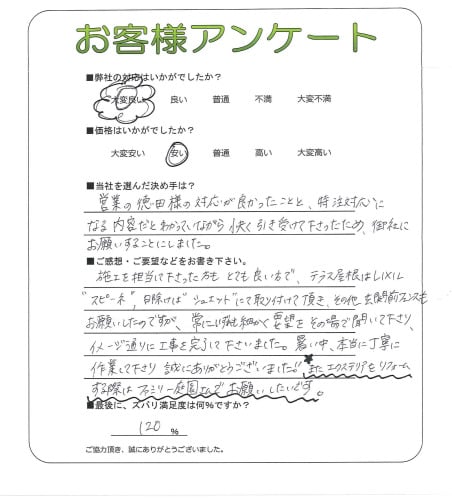 お客様アンケート
■弊社の対応はいかがでしたか?
大変良い 良い 普通 不満 大変不満
■価格はいかがでしたか?
大変安い 安い 普通 高い 大変高い
■当社を選んだ決め手は?
営業の徳田様の対応が良かったことと、特注対応に
なる内容だとわかっていながら快く引き受けて下さったため、御社に
お願いすることにしました。
■ご感想・ご要望などをお書き下さい。
施工を担当して下さった方も とても良い方で、テラス屋根はLIXIL
"スピーネ"、日除けは"シュエット"にて取り付けて頂き、その他、玄関前フェンスも
お願いしたのですが、常に 細かく要望をその場で聞いて下さり、
イメージ通りに工事を完了して下さいました。暑い中、本当に丁寧に
作業して下さり 誠にありがとうございました!! ★またエクステリアをリフォーム
する際はファミリー庭園さんでお願いしたいです。
■最後に、ズバリ満足度は何%ですか?
120 %
ご協力頂き、誠にありがとうございました。